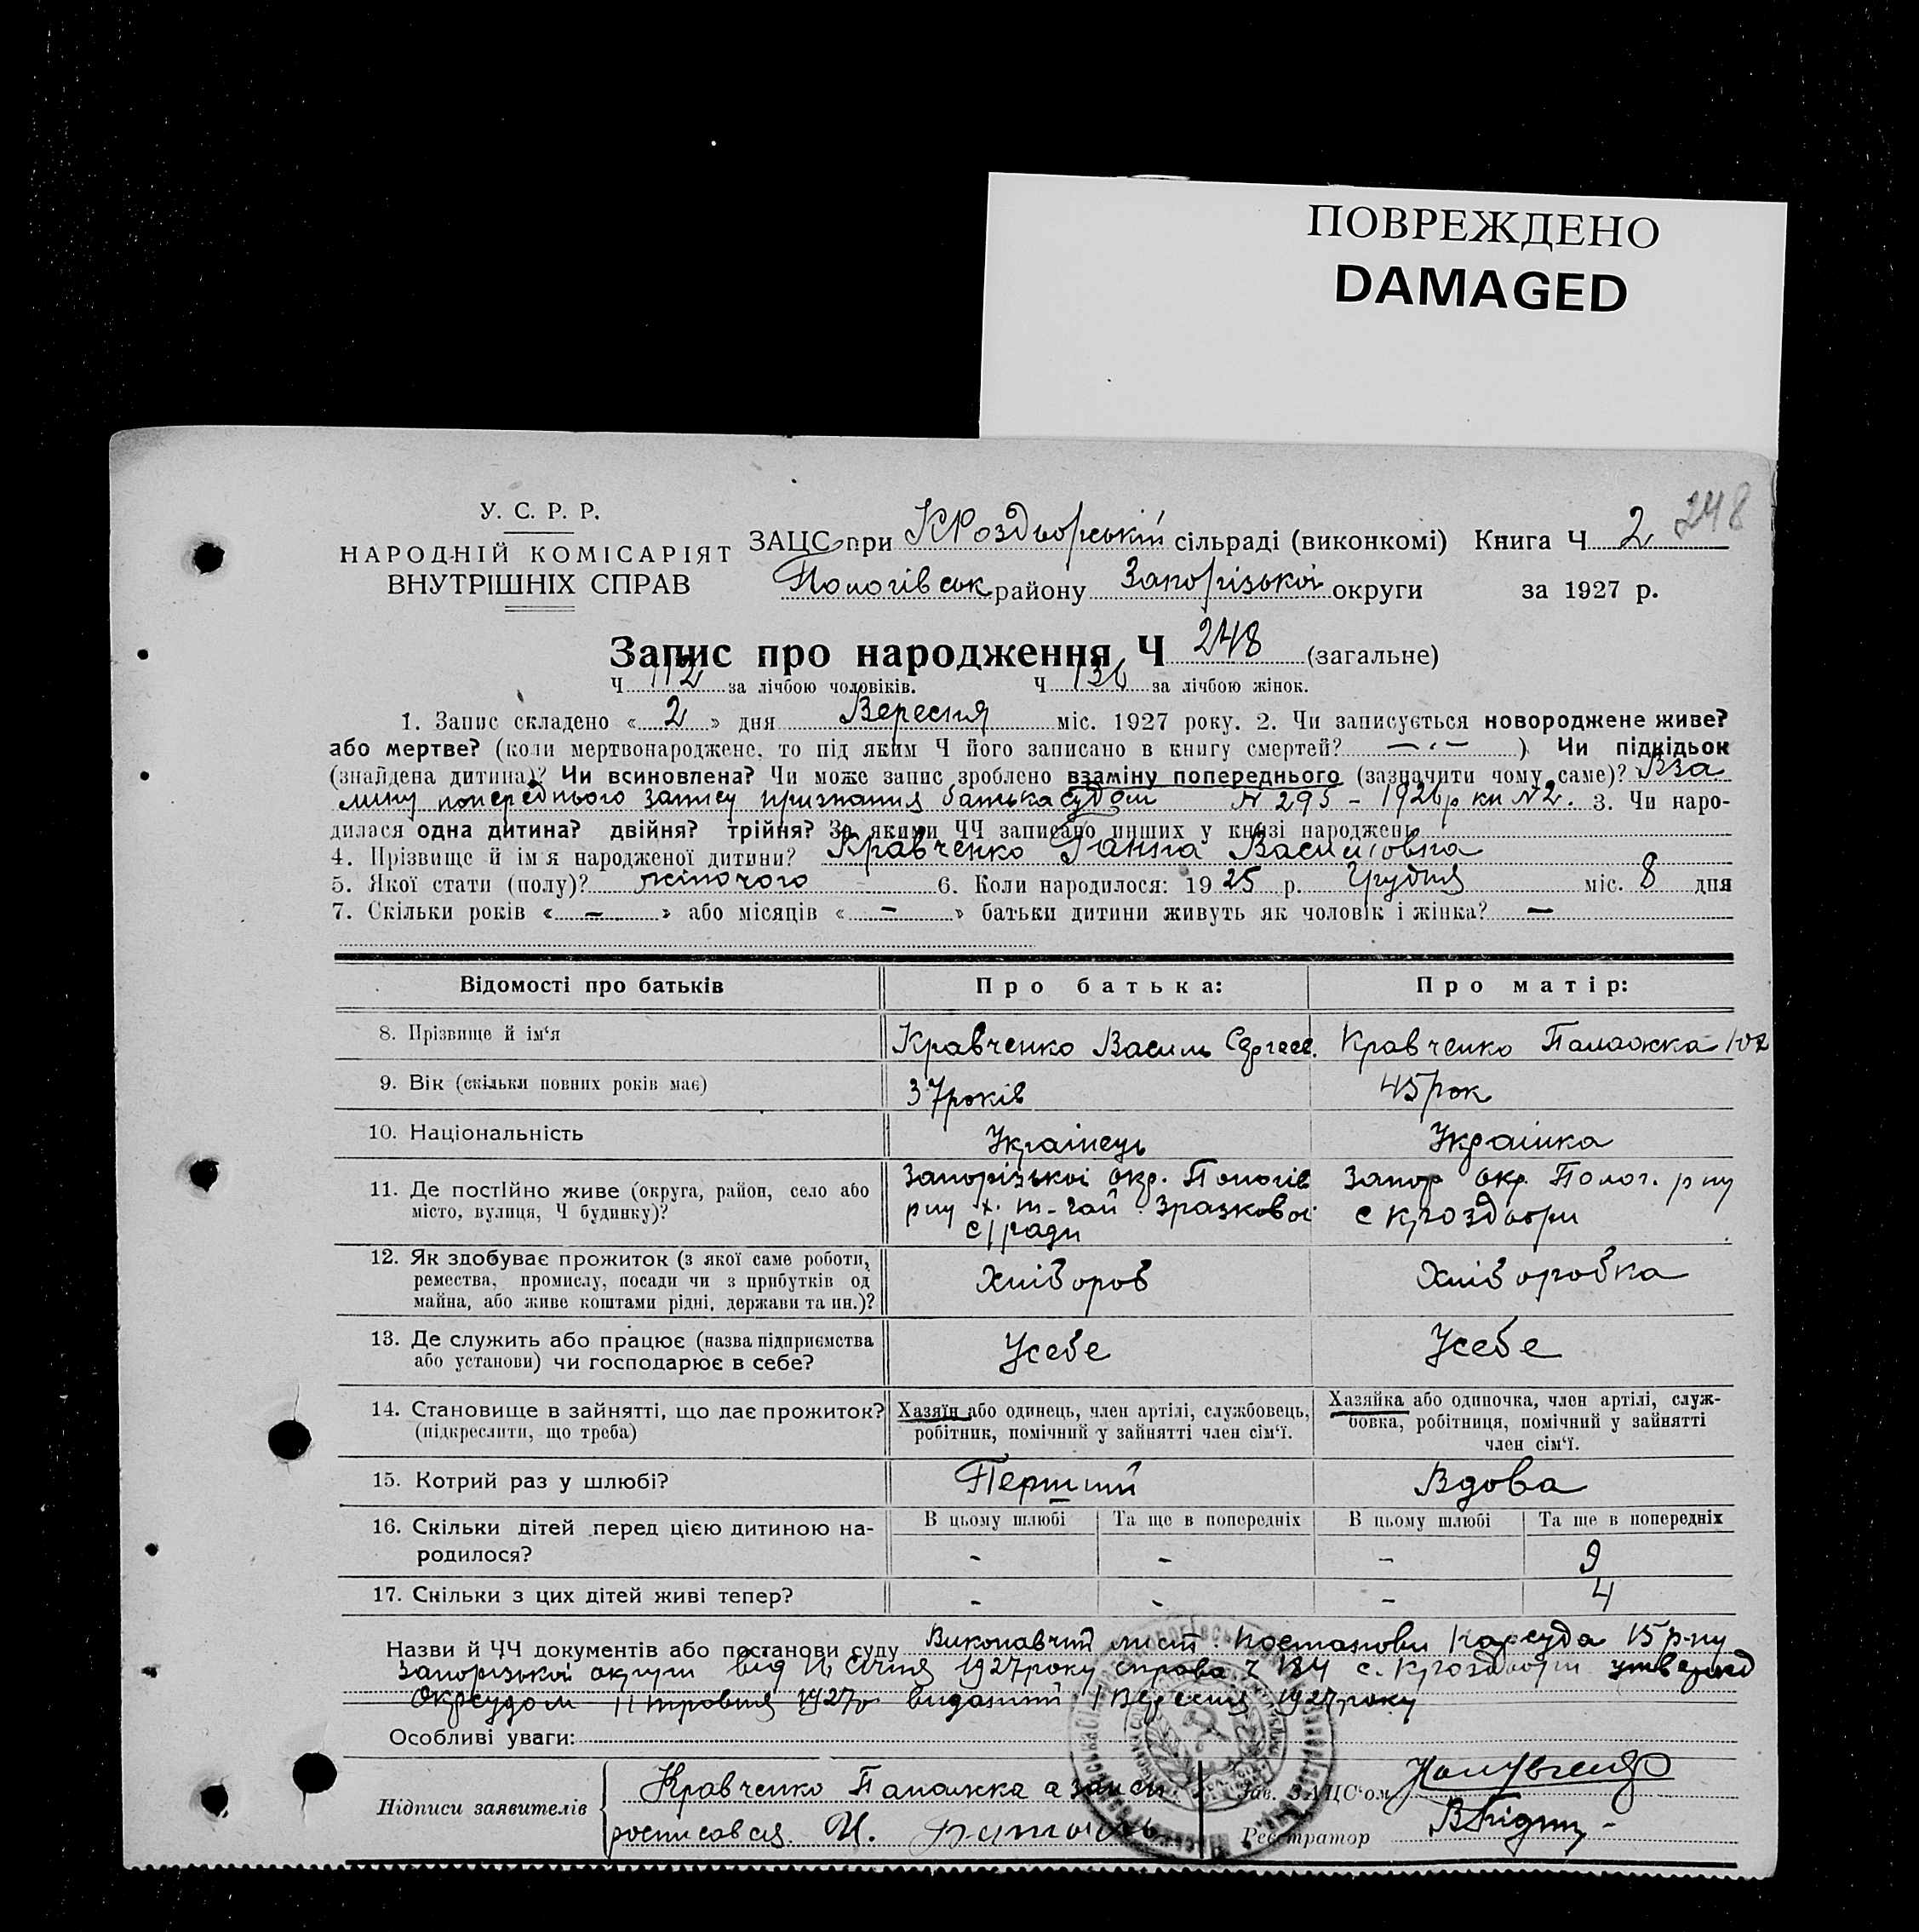 ПОВРЕЖДЕНО
DAMAGED
248
У. С. Р. Р.
НАРОДНІЙ КОМІСАРІЯТ
ВНУТРІШНІХ СПРАВ
ЗАЦС при КРоздорській сільраді (виконкомі) Книга Ч 2
Пологівськ району Запорізькоі округи за 1927 р.
Запис про народження Ч 248 (загальне)
Ч 112 за лічбою чоловіків. Ч 136 за лічбою жінок.
1. Запис складено « 2 » дня Вересня міс. 1927 року. 2. Чи записується новороджене живе?
або мертве? (коли мертвонароджене, то під яким Ч його записано в книгу смертей? — ) Чи підкідьок
(знайдена дитина)? Чи всиновлена? Чи може запис зроблено взаміну попереднього (зазначити чому саме)? Вза
міну попереднього запису признания батька судом № 295 - 1926 р кн №2. 3. Чи наро-
дилася одна дитина? двійня? трійня? За якими ЧЧ записано инших у книзі народжень
4. Прізвище й ім'я народженої дитини? Кравченко Ганна Василіовна
5. Якої стати (полу)? жіночого 6. Коли народилося: 1925 р. Грудня міс. 8 дня
7. Скільки років « — » або місяців « — » батьки дитини живуть як чоловік і жінка? —
Відомості про батьків Про батька: Про матір:
8. Прізвище й ім'я Кравченко Василь Сергеев. Кравченко Палажка
9. Вік (скільки повних років має) 37 років 45 рок
10. Національність Украінець Украінка
11. Де постійно живе (округа, район, село або місто, вулиця, Ч будинку)?
Запорізькоі окр. Пологів
рну х. т-гай Зразковоі
с/ради
Запор окр. Полог. р ну
с Кроздори
12. Як здобуває прожиток (з якої саме роботи,
ремества, промислу, посади чи з прибутків од
майна, або живе коштами рідні, держави та ин.)?
Хлібороб Хліборобка
13. Де служить або працює (назва підприємства
або установи) чи господарює в себе?
Усебе Усебе
14. Становище в зайнятті, що дає прожиток?
(підкреслити, що треба)
Хазяїн або одинець, член артілі, службовець,
робітник, помічний у зайнятті член сім'ї.
Хазяйка або одиночка, член артілі, служ-
бовка, робітниця, помічний у зайнятті
член сім'ї.
15. Котрий раз у шлюбі? Перший Вдова
16. Скільки дітей перед цією дитиною на-
родилося?
В цьому шлюбі Та ще в попередніх В цьому шлюбі Та ще в попередніх
- - - 9
17. Скільки з цих дітей живі тепер? - - - 4
Назви й ЧЧ документів або постанови суду Виконавчий лист. постанови Нарсуда 15 р-ну
Запорізькоі округи від Січня 1927 року справа Ч 184 с. Кроздори
Окрсудом 11 травня 1927р виданий 1 Вересня 1927 року
Особливі уваги:
Підписи заявителів Кравченко Палажка а за
росписався И.
Зав. ЗАЦС'ом
Реєстратор